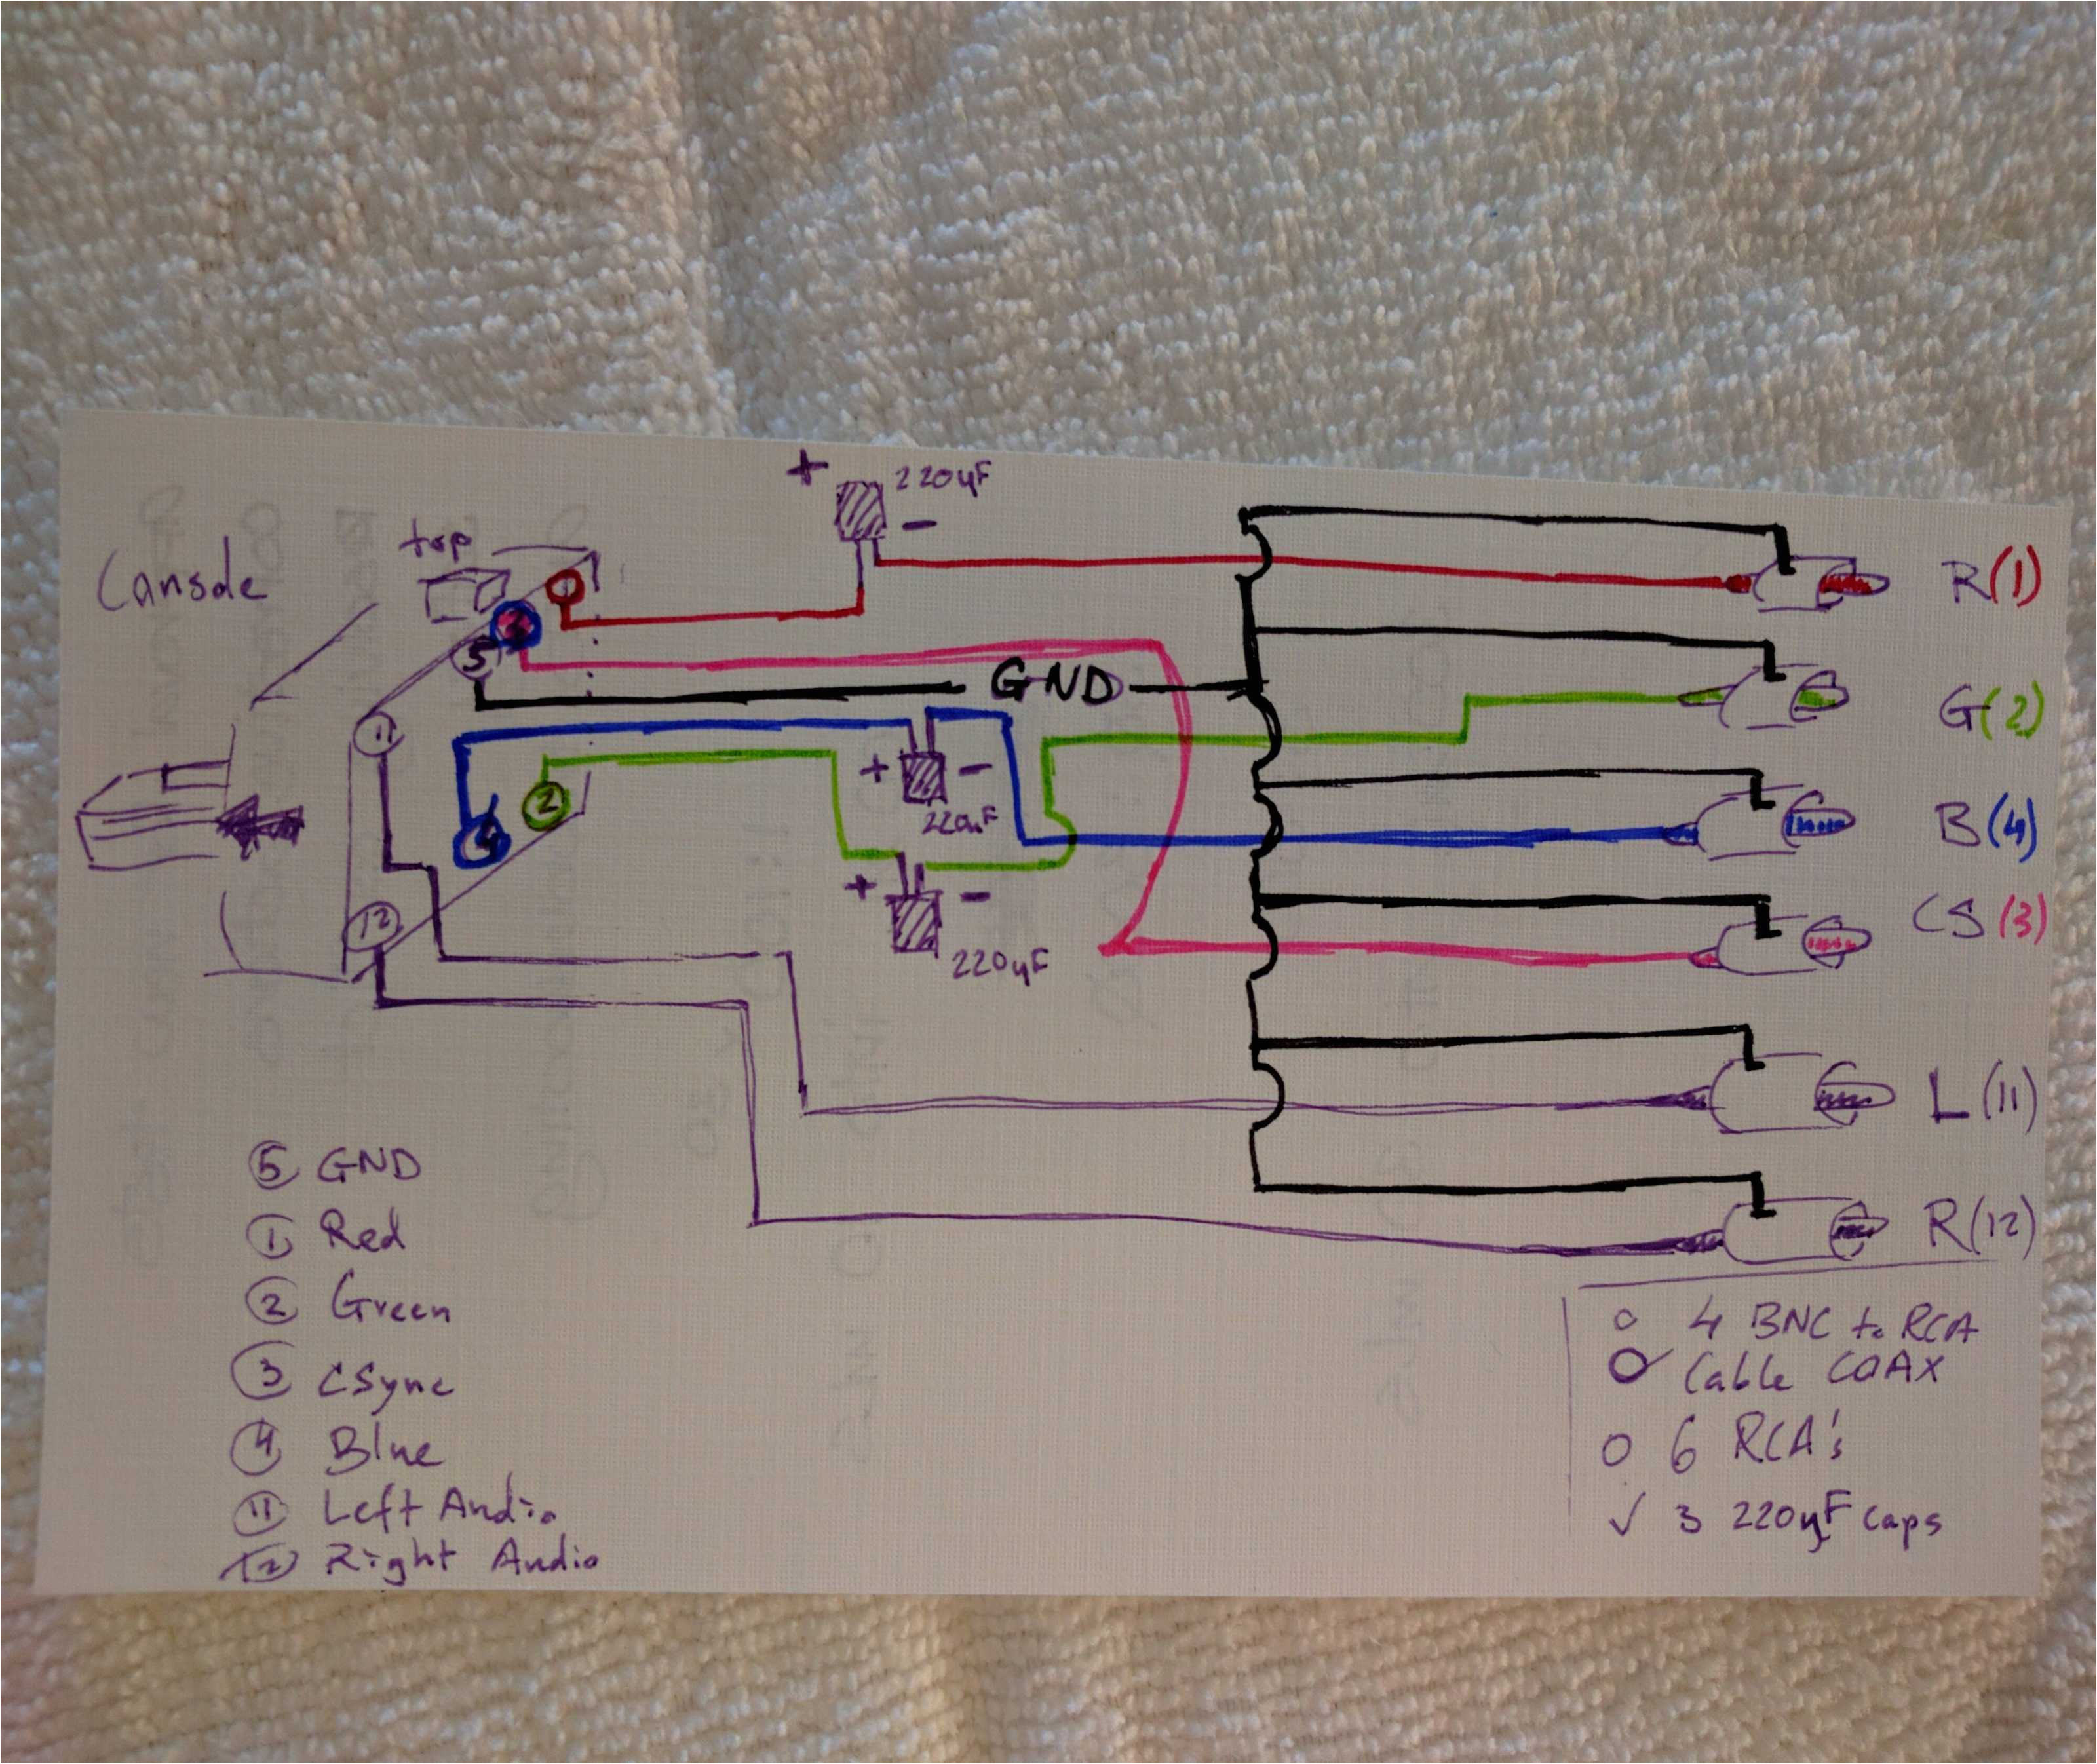 + 220uF
-
Console
top
1
3
5
GND
11
+ -
220uF
4
2
+ -
220uF
12
R(1)
G(2)
B(4)
CS(3)
L(11)
R(12)
5 GND
1 Red
2 Green
3 CSync
4 Blue
11 Left Audio
12 Right Audio
4 BNC to RCA
Cable COAX
6 RCA's
✓ 3 220uF caps